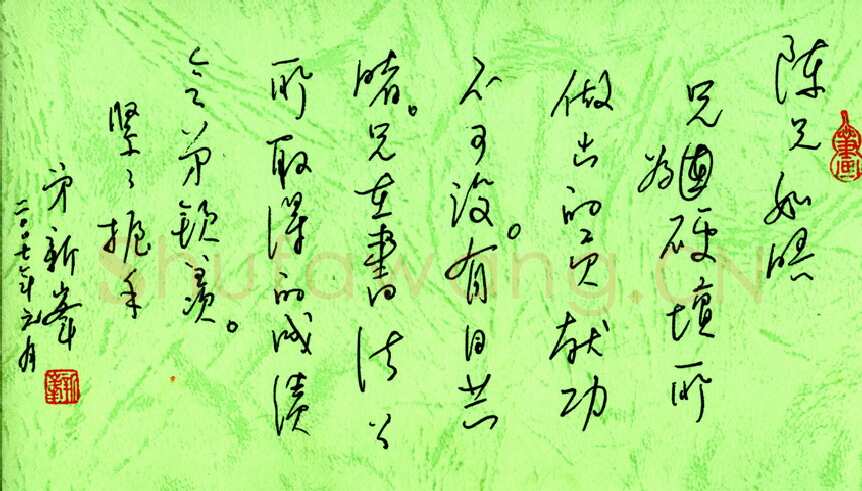 陈兄如晤
兄为硬坛所
做出的贡献功
不可没有目共
睹。兄在书法上
所取得的成绩
令弟钦羡。
紧紧握手
弟新峰
二〇〇七年元月
Shufawang.CN